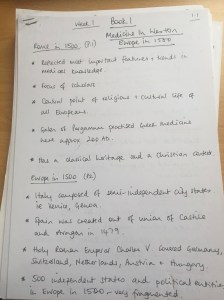 Week 1 Book 1
1.1
Medicine in Western
Europe in 1500
Rome in 1500 (1.1)
• Reflected most important features & trends in
medical knowledge.
• Focus of scholars
• Central point of religious & cultural life of
all Europeans.
• Galen of Pergamum practised Greek medicine
here approx 200 AD.
• Has a classical heritage and a Christian context.
Europe in 1500
• Italy composed of semi-independent city states
ie Venice, Genoa.
• Spain was created out of union of Castile
and Aragon in 1479.
• Holy Roman Emperor Charles V. covered Germany,
Switzerland, Netherlands, Austria & Hungary.
• 500 independent states and political entities
in Europe in 1500 - very fragmented